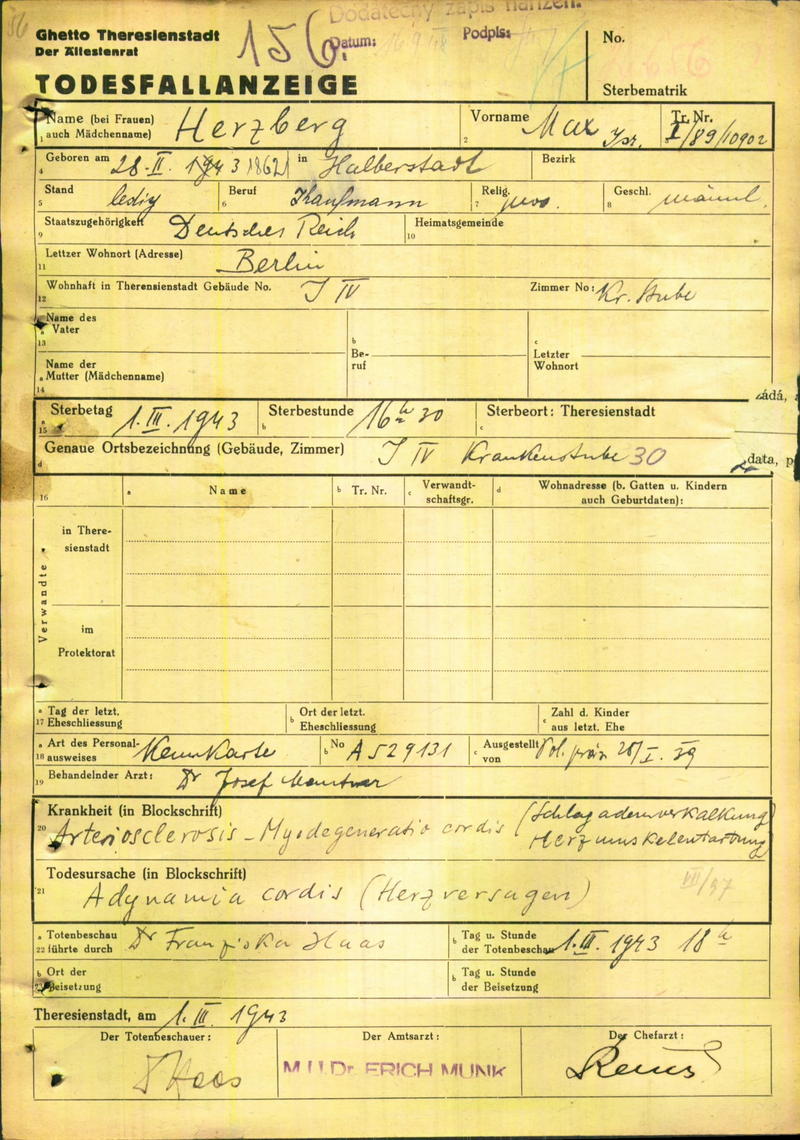 56
Dodatečný zápis nařízen.
Ghetto Theresienstadt
Der Ältestenrat
156
Datum:
Podpis:
No.
TODESFALLANZEIGE
Sterbematrik
Name (bei Frauen) auch Mädchenname) Herzberg
Vorname Max Isr.
Tr. Nr. I/89/10902
1
2
3
Geboren am 28.II. 1943 1862 in Halberstadt
Bezirk
4
Stand ledig
Beruf Kaufmann
Relig. mos.
Geschl. männl.
5
6
7
8
Staatszugehörigkeit Deutsches Reich
Heimatsgemeinde
9
10
Letzter Wohnort (Adresse) Berlin
11
Wohnhaft in Theresienstadt Gebäude No. J IV
Zimmer No: Kr. Stube
12
a Name des Vater
13
b Beruf
c Letzter Wohnort
Name der
a Mutter (Mädchenname)
14
žádá,
a Sterbetag 1.III.1943
b Sterbestunde 16h 30
c Sterbeort: Theresienstadt
15
d Genaue Ortsbezeichnung (Gebäude, Zimmer) J IV Krankenstube 30
data, p
16
a Name
b Tr. Nr.
c Verwandtschaftsgr.
d Wohnadresse (b. Gatten u. Kindern auch Geburtdaten):
Verwandte
in Theresienstadt
im Protektorat
a Tag der letzt.
17 Eheschliessung
b Ort der letzt. Eheschliessung
c Zahl d. Kinder aus letzt. Ehe
a Art des Personal-
18 ausweises Kennkarte
b No A 529131
c Ausgestellt von Pol. präs 20/I. 39
19 Behandelnder Arzt: Dr Josef Mautner
Krankheit (in Blockschrift)
20 Arteriosclerosis - Myodegeneratio cordis (Schlagadernverkalkung
Herzmuskelentartung)
Todesursache (in Blockschrift)
21 Adynamia cordis (Herzversagen)
VII/37
a Totenbeschau
22 führte durch Dr Franziska Haas
b Tag u. Stunde der Totenbeschau 1.III.1943 18h
b Ort der
23 Beisetzung
b Tag u. Stunde der Beisetzung
Theresienstadt, am 1.III.1943
Der Totenbeschauer:
Der Amtsarzt:
Der Chefarzt:
Haas
MUDr. ERICH MUNK